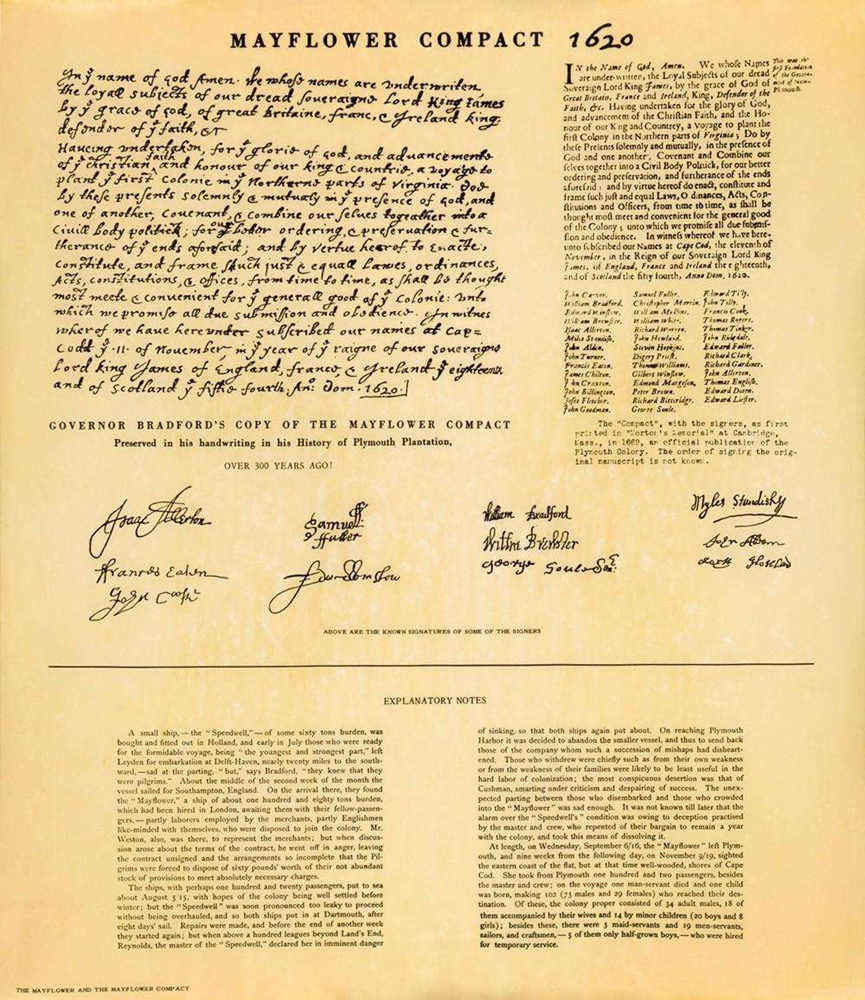 MAYFLOWER COMPACT 1620
In ẏ name of god Amen. We whose names are vnderwriten,
the loyall subjects of our dread soueraigne Lord King James
by ẏ grace of god, of great Britaine, franc, & Ireland king,
defender of ẏ faith, &c
Haueing vndertaken, for ẏ glorie of god, and aduancemente
of ẏ christian faith and honour of our king & countrie, a voyage to
plant ẏ first colonie in ẏ Northerne parts of Virginia. Doe
by these presents solemnly & mutualy in ẏ presence of god, and
one of another, couenant, & combine our selues togeather into a
ciuill body politick; for our better ordering, & preseruation & fur=
therance of ẏ ends aforesaid; and by vertue hearof to enacte,
constitute, and frame shuch just & equall Lawes, ordinances,
Acts, constitutions, & offices, from time to time, as shall be thought
most meete & conuenient for ẏ generall good of ẏ Colonie: vnto
which we promise all due submission and obedience. In witnes
wherof we haue herevnder subscribed our names at Cap=
Codd ẏ ·11· of Nouember, in ẏ year of ẏ raigne of our soueraigne
Lord king James of England, france, & Ireland ẏ eighteenth
and of Scotland ẏ fiftie fourth. An: Dom. 1620.]
GOVERNOR BRADFORD'S COPY OF THE MAYFLOWER COMPACT
Preserved in his handwriting in his History of Plymouth Plantation,
OVER 300 YEARS AGO!
IN the Name of God, Amen. We whose Names
are under-written, the Loyal Subjects of our dread
Soveraign Lord King James, by the grace of God of
Great Britain, France and Ireland, King, Defender of the
Faith, &c. Having undertaken for the glory of God,
and advancement of the Christian Faith, and the Ho-
nour of our King and Countrey, a Voyage to plant the
first Colony in the Northern parts of Virginia; Do by
these Presents solemnly and mutually, in the presence of
God and one another, Covenant and Combine our
selves together into a Civil Body Politick, for our better
ordering and preservation, and furtherance of the ends
aforesaid: and by virtue hereof do enact, constitute and
frame such just and equal Laws, Ordinances, Acts, Con-
stitutions and Officers, from time to time, as shall be
thought most meet and convenient for the general good
of the Colony; unto which we promise all due submis-
sion and obedience. In witness whereof we have here-
unto subscribed our Names at Cape Cod, the eleventh of
November, in the Reign of our Soveraign Lord King
James, of England, France and Ireland the eighteenth,
and of Scotland the fifty fourth, Anno Dom. 1620.
This was the
first Foundation
of the Government
of New
Plimouth.
John Carver. Samuel Fuller. Edward Tilly.
William Bradford. Christopher Martin. John Tilly.
Edward Winslow. William Mullins. Francis Cook.
William Brewster. William White. Thomas Rogers.
Isaac Allerton. Richard Warren. Thomas Tinker.
Miles Standish. John Howland. John Ridgdale.
John Alden. Steven Hopkins. Edward Fuller.
John Turner. Digery Priest. Richard Clark.
Francis Eaton. Thomas Williams. Richard Gardiner.
James Chilton. Gilbert Winslow. John Allerton.
John Craxton. Edmond Margeson. Thomas English.
John Billington. Peter Brown. Edward Doten.
Joses Fletcher. Richard Bitteridge. Edward Liester.
John Goodman. George Soule.
The "Compact", with the signers, as first
printed in "Morton's Memorial" at Cambridge,
Mass., in 1669, an official publication of the
Plymouth Colony. The order of signing the orig-
inal manuscript is not known.
Isaac Allerton
Samuell ffuller
William Bradford
Myles Standish
Willm Brewster
George Soule
ffrances Eaton
John Cooke
Edw Winslow
ABOVE ARE THE KNOWN SIGNATURES OF SOME OF THE SIGNERS
EXPLANATORY NOTES
A small ship,—the "Speedwell,"—of some sixty tons burden, was
bought and fitted out in Holland, and early in July those who were ready
for the formidable voyage, being "the youngest and strongest part," left
Leyden for embarkation at Delft-Haven, nearly twenty miles to the south-
ward,—sad at the parting, "but," says Bradford, "they knew that they
were pilgrims." About the middle of the second week of the month the
vessel sailed for Southampton, England. On the arrival there, they found
the "Mayflower," a ship of about one hundred and eighty tons burden,
which had been hired in London, awaiting them with their fellow-passen-
gers,—partly laborers employed by the merchants, partly Englishmen
like-minded with themselves, who were disposed to join the colony. Mr.
Weston, also, was there, to represent the merchants; but when discus-
sion arose about the terms of the contract, he went off in anger, leaving
the contract unsigned and the arrangements so incomplete that the Pil-
grims were forced to dispose of sixty pounds' worth of their not abundant
stock of provisions to meet absolutely necessary charges.
The ships, with perhaps one hundred and twenty passengers, put to sea
about August 5/15, with hopes of the colony being well settled before
winter; but the "Speedwell" was soon pronounced too leaky to proceed
without being overhauled, and so both ships put in at Dartmouth, after
eight days' sail. Repairs were made, and before the end of another week
they started again; but when above a hundred leagues beyond Land's End,
Reynolds, the master of the "Speedwell," declared her in imminent danger
of sinking, so that both ships again put about. On reaching Plymouth
Harbor it was decided to abandon the smaller vessel, and thus to send back
those of the company whom such a succession of mishaps had disheart-
ened. Those who withdrew were chiefly such as from their own weakness
or from the weakness of their families were likely to be least useful in the
hard labor of colonization; the most conspicuous desertion was that of
Cushman, smarting under criticism and despairing of success. The unex-
pected parting between those who disembarked and those who crowded
into the "Mayflower" was sad enough. It was not known till later that the
alarm over the "Speedwell's" condition was owing to deception practised
by the master and crew, who repented of their bargain to remain a year
with the colony, and took this means of dissolving it.
At length, on Wednesday, September 6/16, the "Mayflower" left Plym-
outh, and nine weeks from the following day, on November 9/19, sighted
the eastern coast of the flat, but at that time well-wooded, shores of Cape
Cod. She took from Plymouth one hundred and two passengers, besides
the master and crew; on the voyage one man-servant died and one child
was born, making 102 (73 males and 29 females) who reached their des-
tination. Of these, the colony proper consisted of 34 adult males, 18 of
them accompanied by their wives and 14 by minor children (20 boys and 8
girls); besides these, there were 3 maid-servants and 19 men-servants,
sailors, and craftsmen,—5 of them only half-grown boys,—who were hired
for temporary service.
THE MAYFLOWER AND THE MAYFLOWER COMPACT